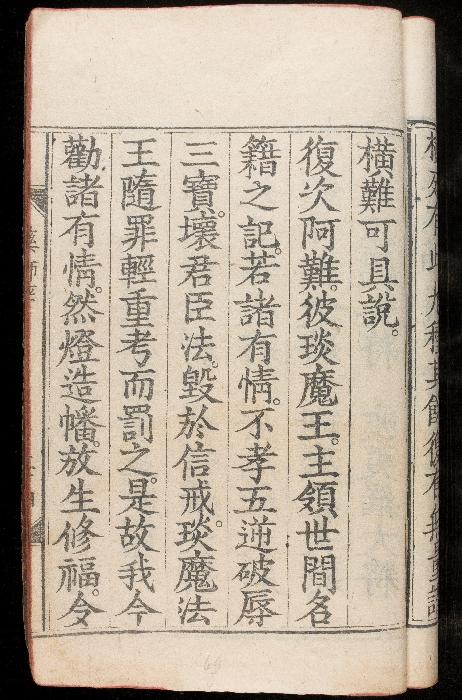 橫難可具說。
復次阿難。彼琰魔王。主領世間名
籍之記。若諸有情。不孝五逆破辱
三寶。壞君臣法。毀於信戒。琰魔法
王隨罪輕重考而罰之。是故我今
勸諸有情。然燈造幡。放生修福。令
藥師經